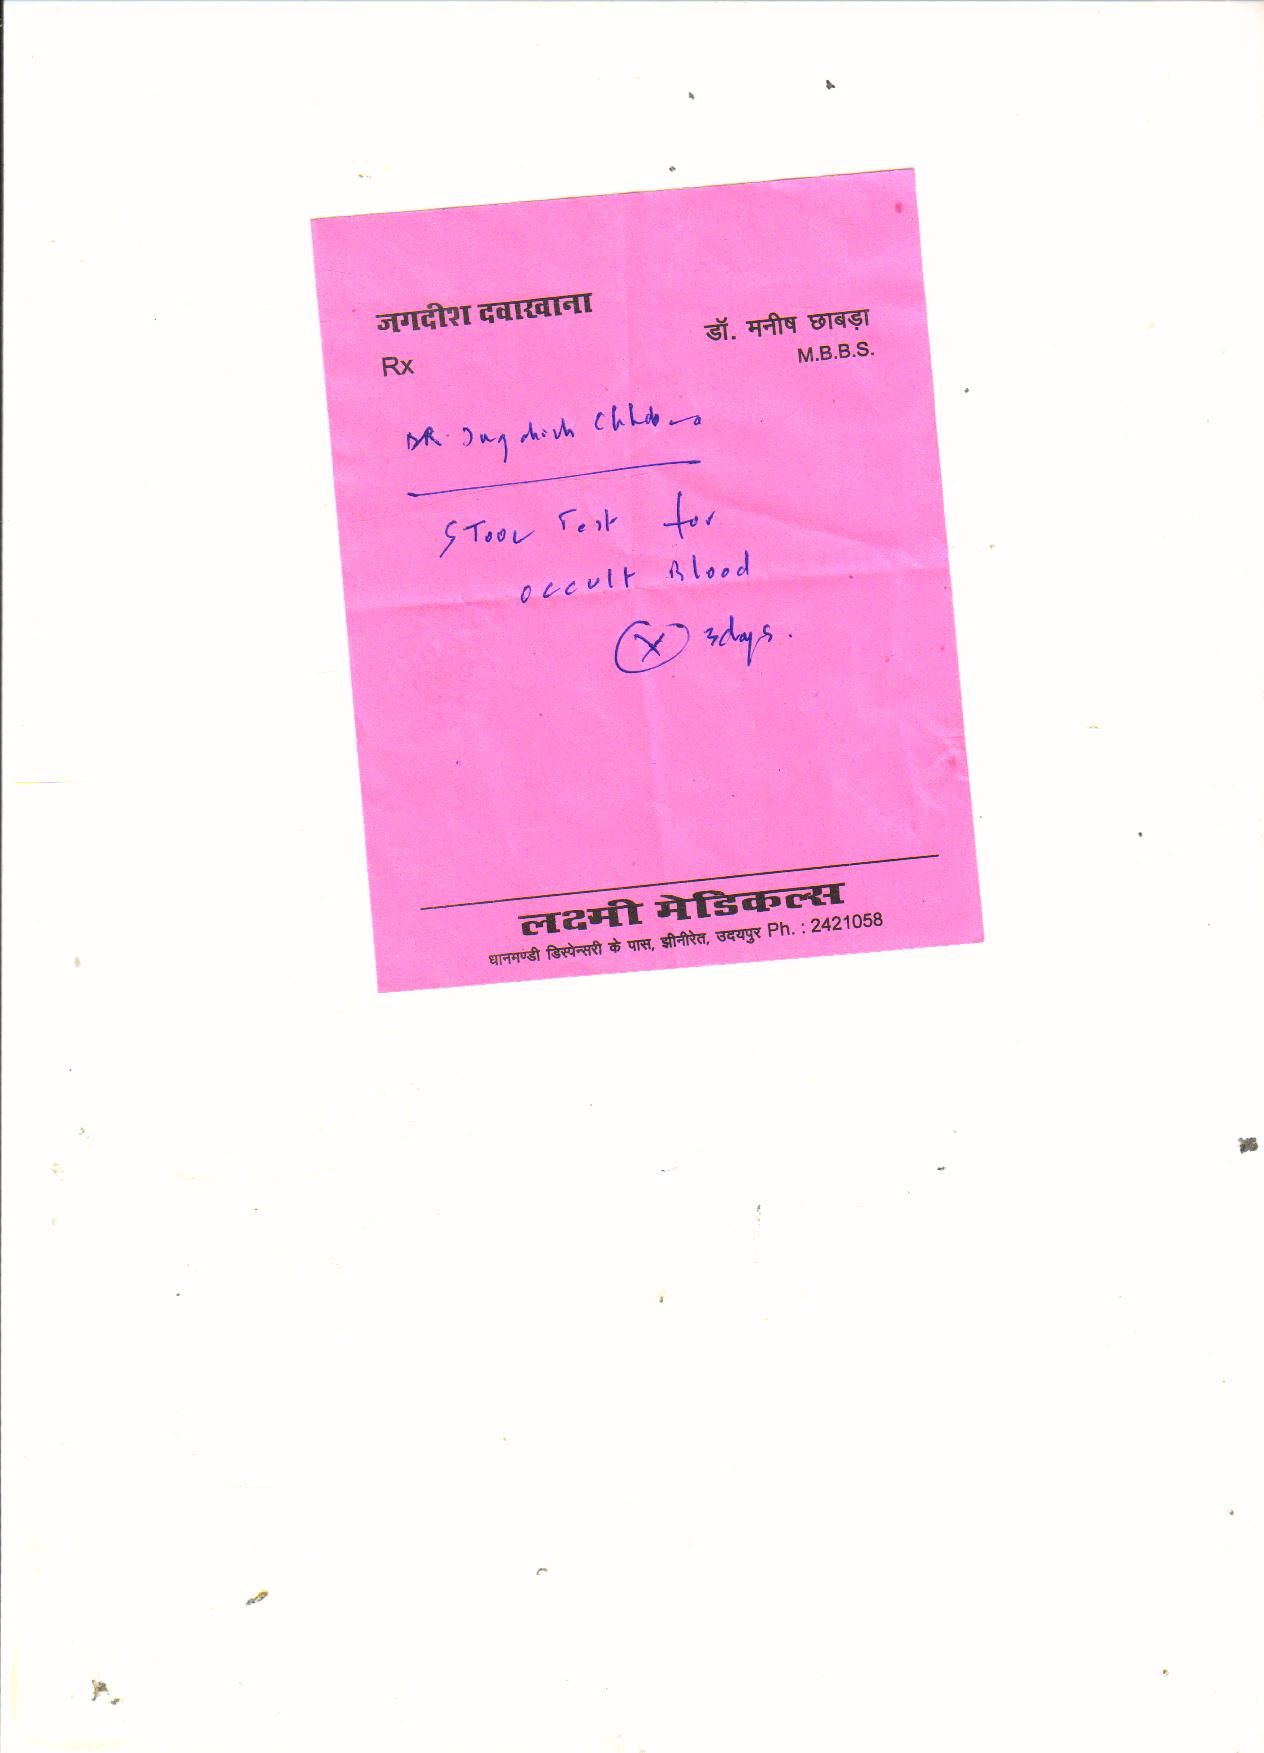 जगदीश दवाखाना
डॉ. मनीष छाबड़ा
Rx
M.B.B.S.
DR. Jagdish
Stool Test for
occult Blood
(X) 3days.
लक्ष्मी मेडिकल्स
धानमण्डी डिस्पेन्सरी के पास, झीनीरेत, उदयपुर Ph. : 2421058